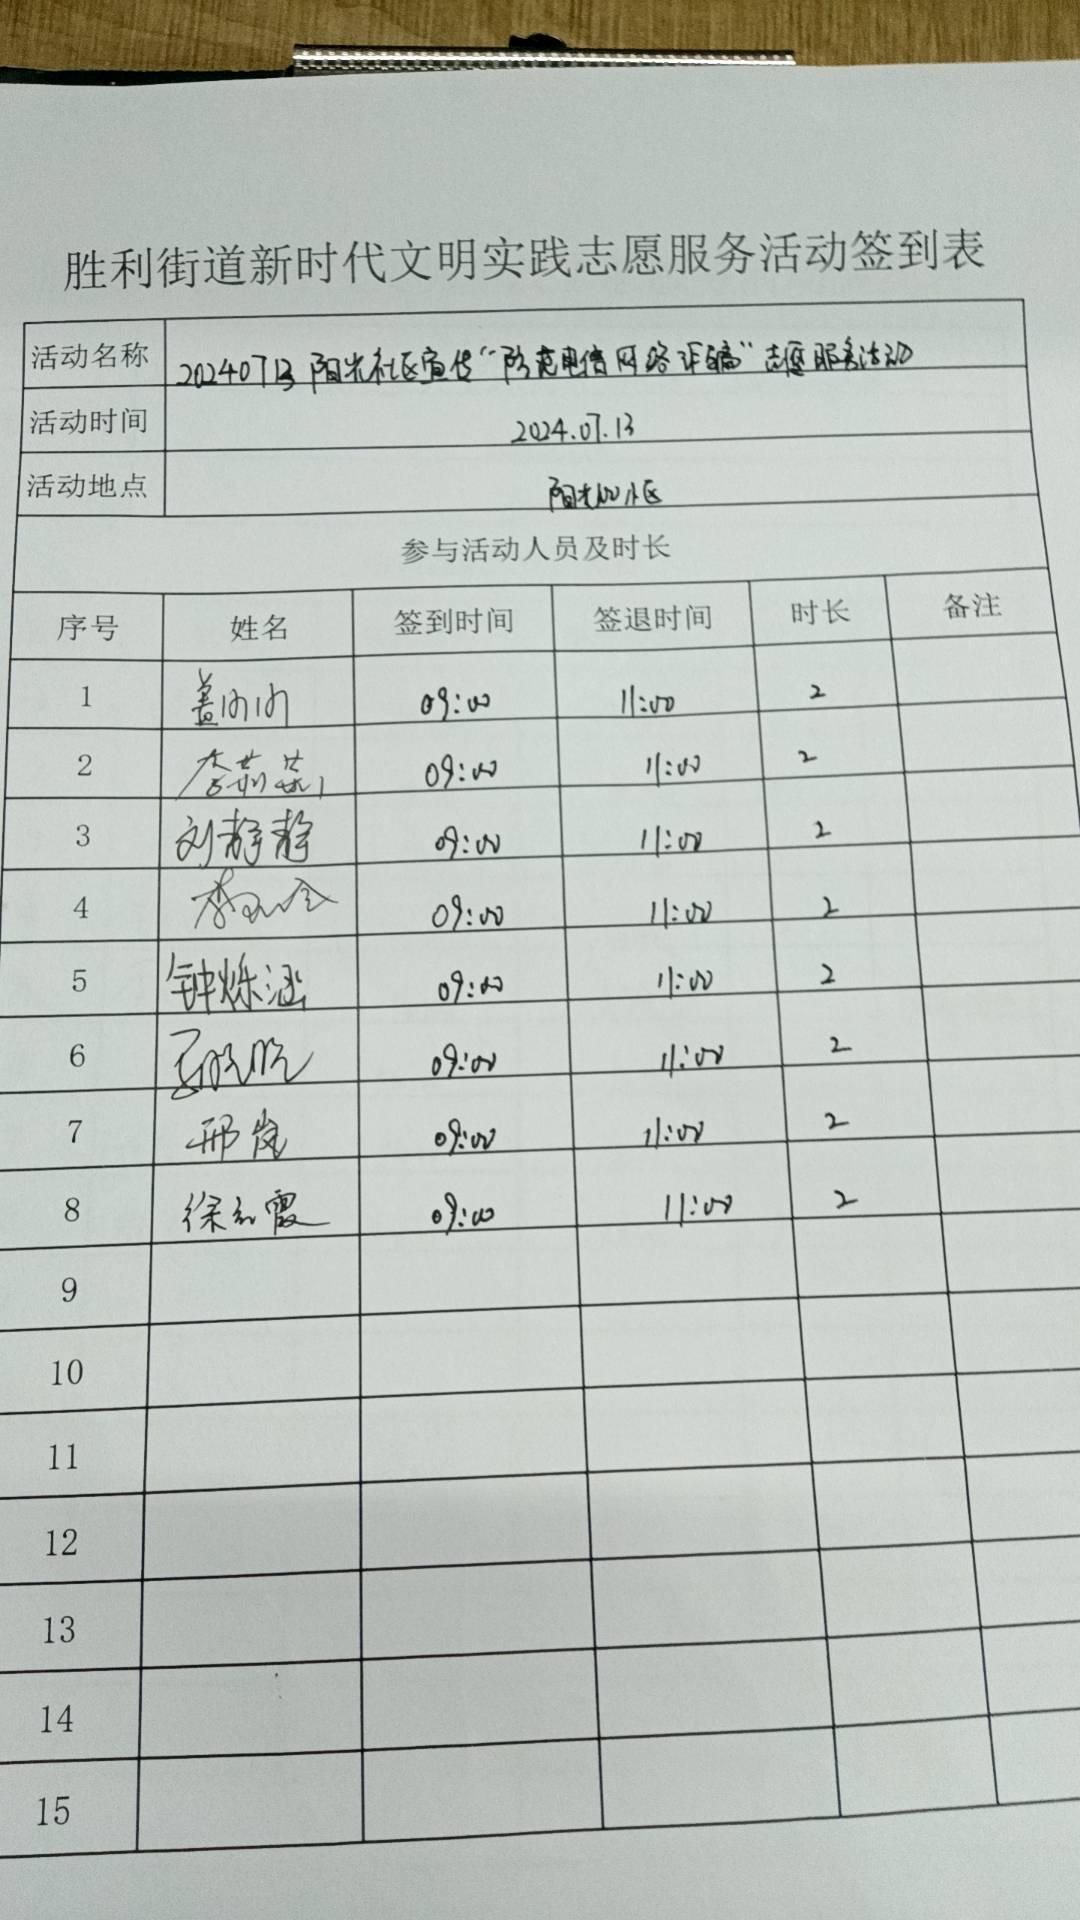 胜利街道新时代文明实践志愿服务活动签到表
活动名称 20240713 阳光社区宣传“防范电信网络诈骗”志愿服务活动
活动时间 2024.07.13
活动地点 阳光
参与活动人员及时长
序号 姓名 签到时间 签退时间 时长 备注
1 09:00 11:00 2
2 09:00 11:00 2
3 刘静静 09:00 11:00 2
4 09:00 11:00 2
5 钟烁涵 09:00 11:00 2
6 09:00 11:00 2
7 邢岚 09:00 11:00 2
8 徐红霞 09:00 11:00 2
9
10
11
12
13
14
15